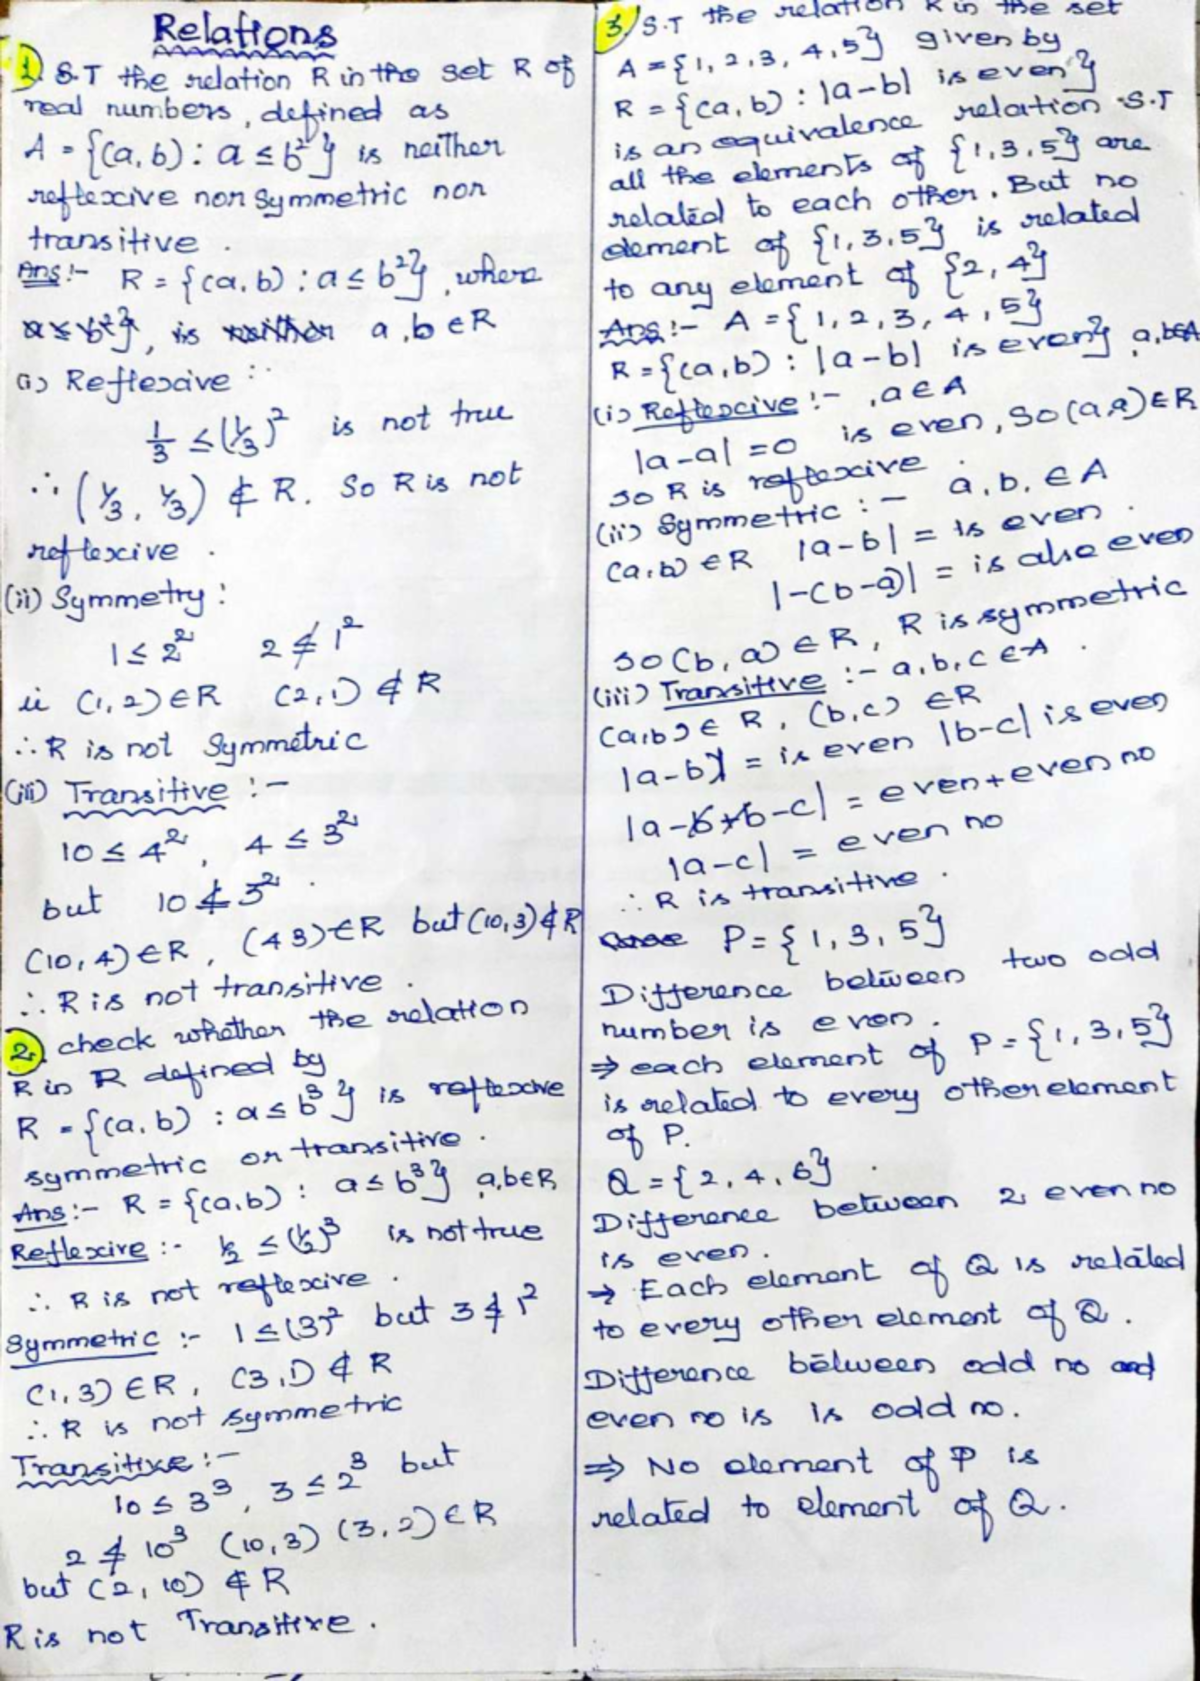 Relations
1. S.T the relation R in the set R of
real numbers, defined as
A = {(a,b) : a ≤ b²} is neither
reflexive nor symmetric nor
transitive.
Ans:- R = {(a,b) : a ≤ b²}, where
a ≤ b²}, is neither a,b ∈ R
(i) Reflexive :-
1/3 ≤ (1/3)² is not true
∴ (1/3, 1/3) ∉ R. So R is not
reflexive.
(ii) Symmetry:
1 ≤ 2² 2 ≰ 1²
ii (1,2) ∈ R (2,1) ∉ R
∴ R is not Symmetric
(iii) Transitive :-
10 ≤ 4², 4 ≤ 3²
but 10 ≰ 3².
(10,4) ∈ R, (4 3) ∈ R but (10,3) ∉ R
∴ R is not transitive.
2. check whether the relation
R in R defined by
R = {(a,b) : a ≤ b³} is reflexive
symmetric or transitive.
Ans:- R = {(a,b) : a ≤ b³} a,b∈R
Reflexive :- 1/2 ≤ (1/2)³ is not true
∴ R is not reflexive.
Symmetric :- 1 ≤ (3)² but 3 ≰ 1²
(1,3) ∈ R, (3,1) ∉ R
∴ R is not symmetric
Transitive :-
10 ≤ 3³, 3 ≤ 2³ but
2 ≰ 10³ (10,3) (3,2) ∈ R
but (2,10) ∉ R
R is not Transitive.
3. S.T the relation R in the set
A = {1, 2, 3, 4, 5} given by
R = {(a,b) : |a-b| is even}
is an equivalence relation. S.T
all the elements of {1,3,5} are
related to each other. But no
element of {1,3,5} is related
to any element of {2,4}
Ans:- A = {1, 2, 3, 4, 5}
R = {(a,b) : |a-b| is even}, a,b∈A
(i) Reflexive :- , a ∈ A
|a-a| = 0 is even, so (a,a) ∈ R
so R is reflexive.
(ii) Symmetric :- a,b, ∈ A
(a,b) ∈ R |a-b| = is even.
|-(b-a)| = is also even
so (b,a) ∈ R, R is symmetric
(iii) Transitive :- a,b,c ∈ A.
(a,b) ∈ R, (b,c) ∈ R
|a-b| = is even |b-c| is even
|a-b+b-c| = even + even no
|a-c| = even no
∴ R is transitive.
P = {1, 3, 5}
Difference between two odd
number is even.
⇒ each element of P = {1, 3, 5}
is related to every other element
of P.
Q = {2, 4, 6}.
Difference between 2 even no
is even.
→ Each element of Q is related
to every other element of Q.
Difference between odd no and
even no is is odd no.
⇒ No element of P is
related to element of Q.